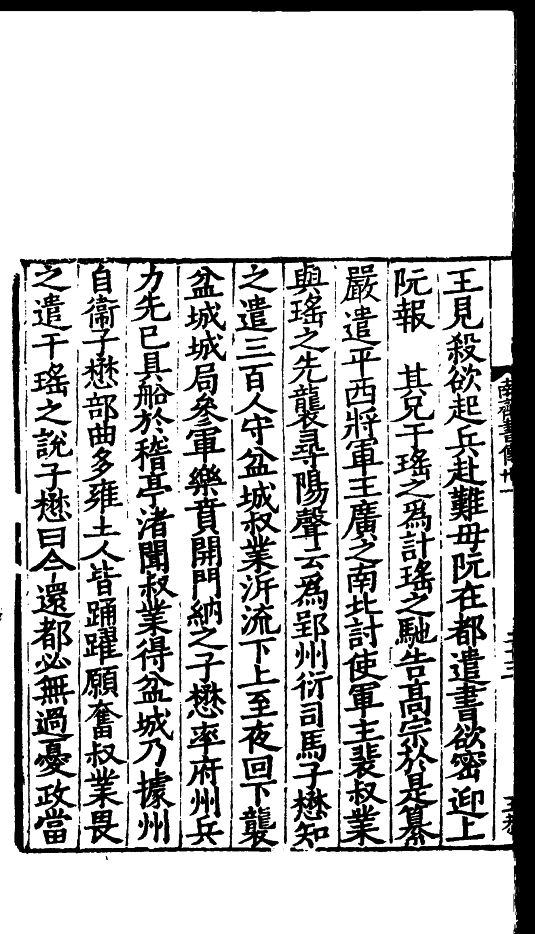 王見殺欲起兵赴難母阮在都遣書欲密迎上
阮報　其兄于瑤之爲計瑤之馳告髙宗於是纂
嚴遣平西將軍王廣之南北討使軍主裴叔業
與瑤之先襲尋陽聲云爲郢州行司馬子懋知
之遣三百人守盆城叔業泝流下上至夜回下襲
盆城城局叅軍樂賁開門納之子懋率府州兵
力先已具船於稽亭渚聞叔業得盆城乃據州
自衞子懋部曲多雍土人皆踊躍願奮叔業畏
之遣于瑤之說子懋曰今還都必無過憂政當